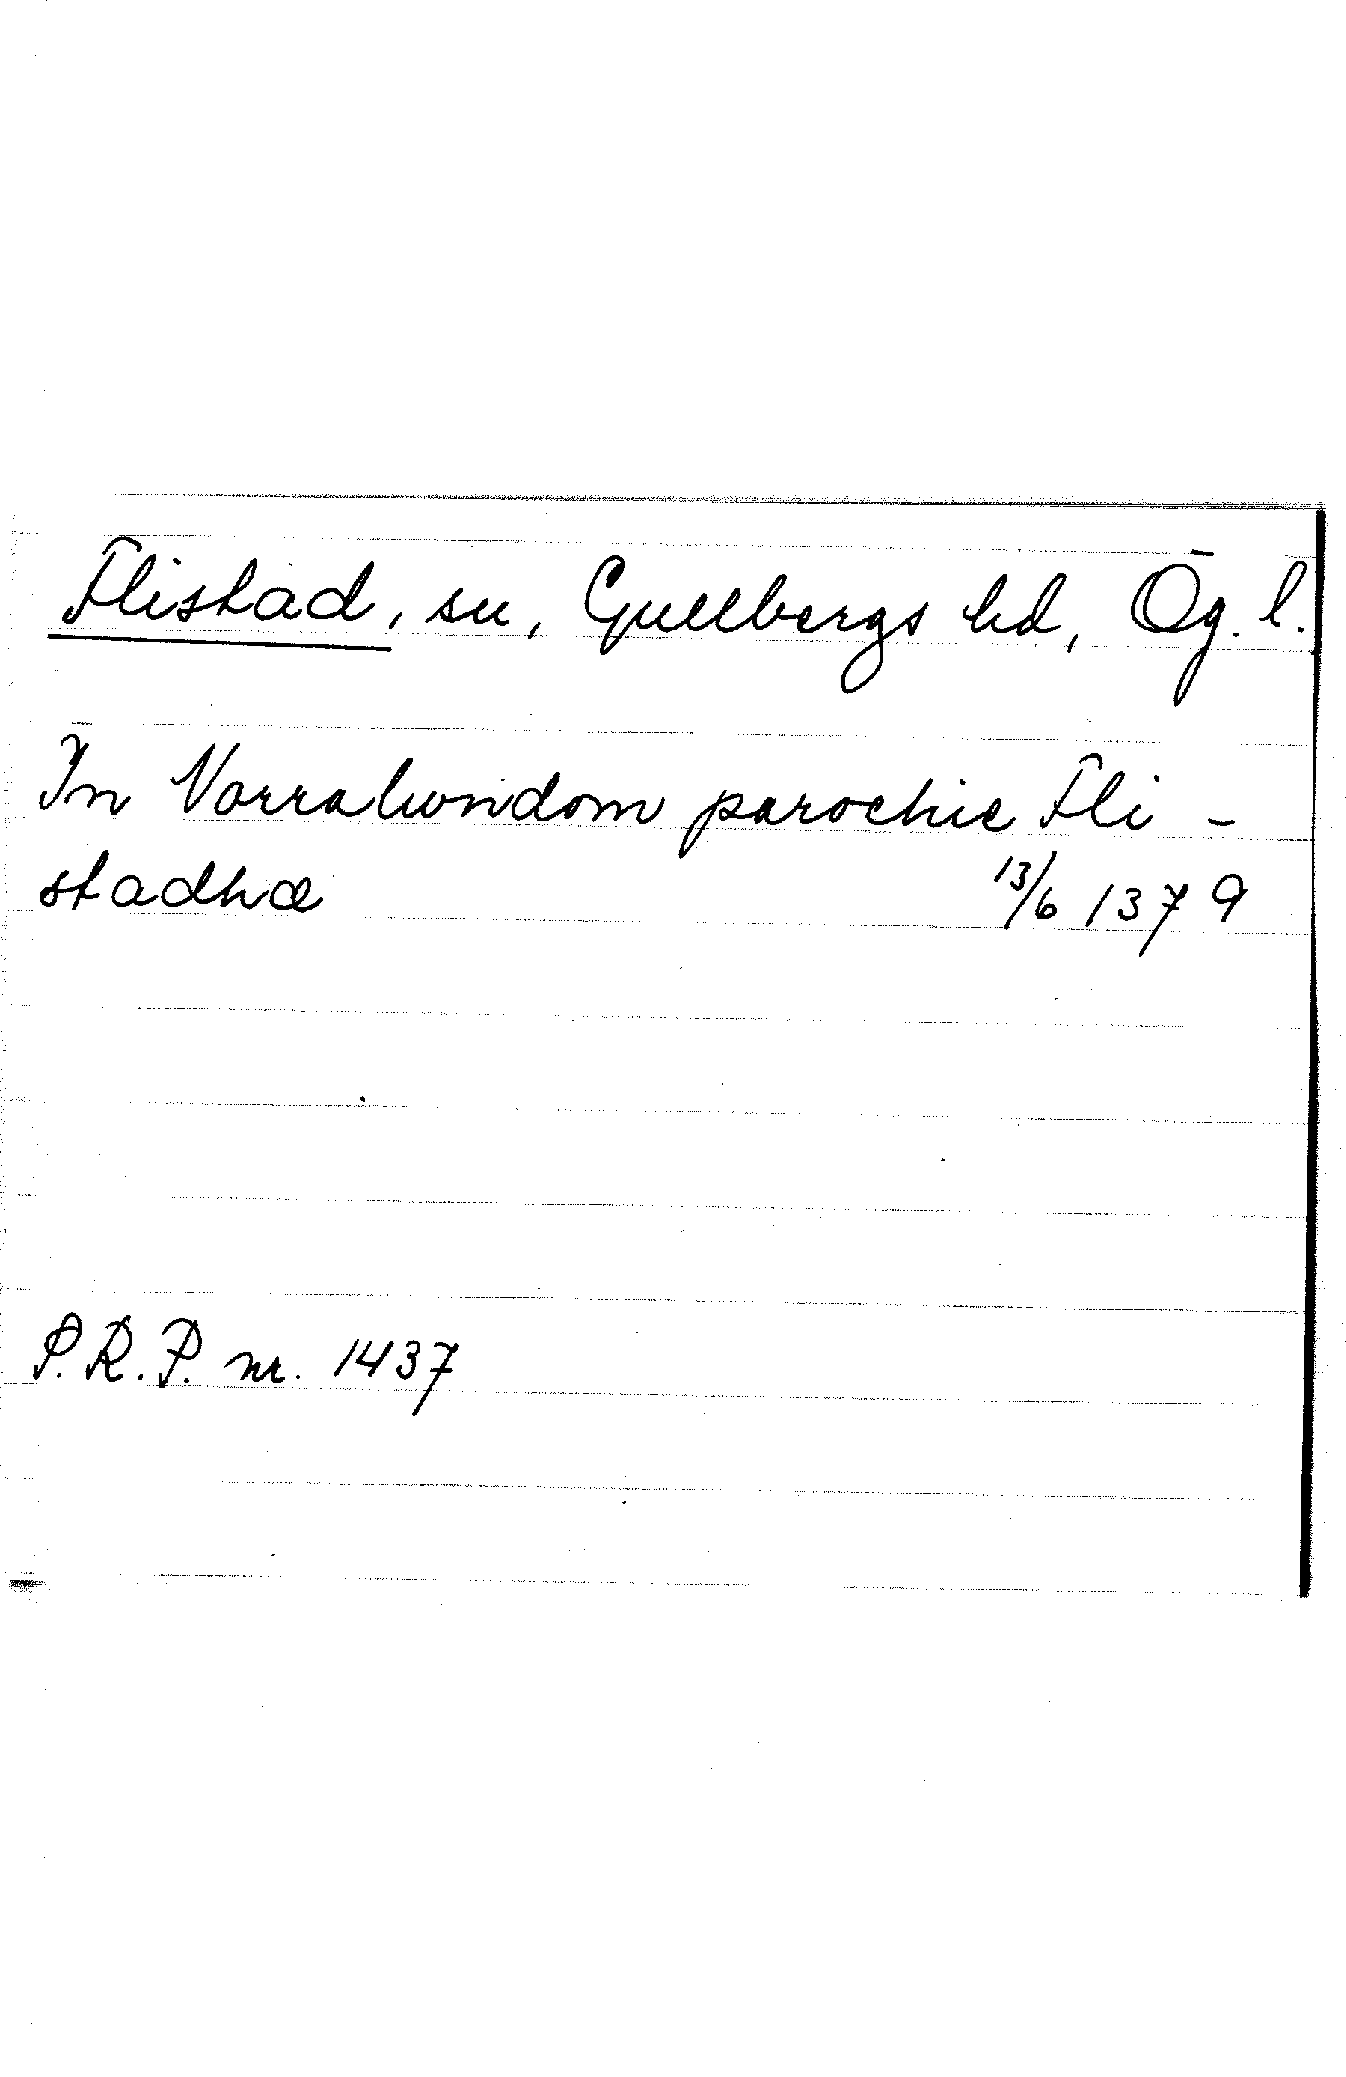 Flistad, sn, Gullbergs hd, Ög. l.
In Varralwndom parochie Fli-
stadhæ 13/6 1379
P.R.P. nr. 1437